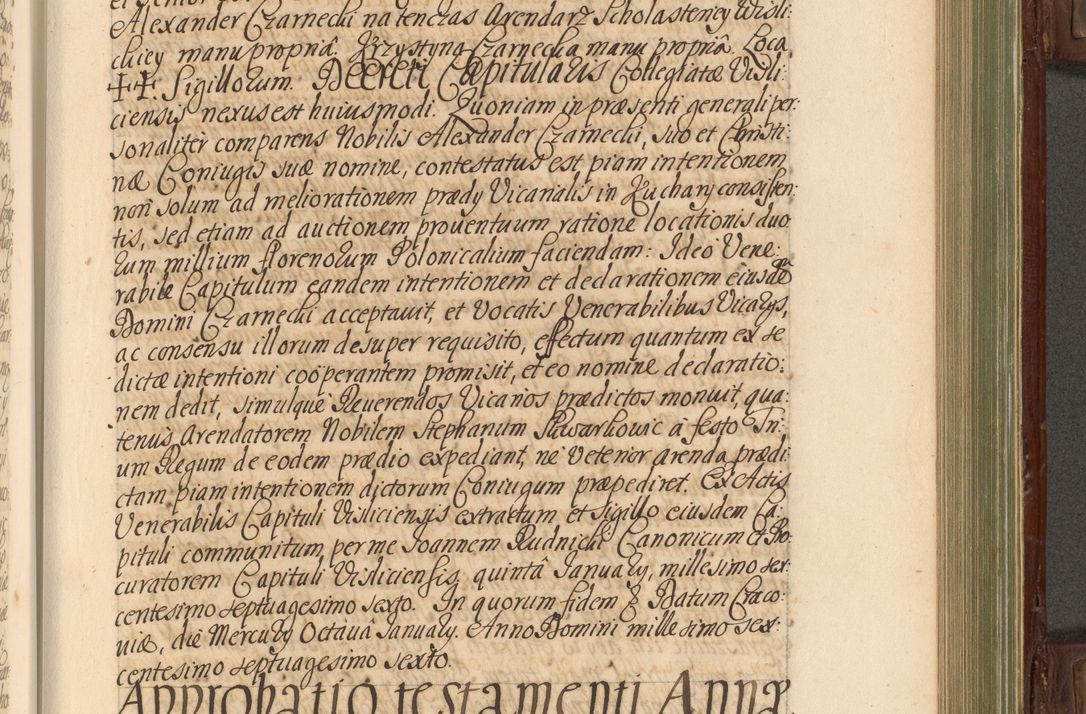 Alexander Czarnecki natenczas Arendarz Scholasteney Wisli:
ckiey manu propriâ. Krzystyna Czarnecka manu propriâ. Loca
‡‡. Sigillorum. Decreti Capitularis Collegiatæ Visli:
ciensis nexus est huiusmodi. Quoniam in præsenti generali per:
sonaliter comparens Nobilis Alexander Czarnecki, suo et Christi:
næ Coniugis suæ nomine, contestatus est piam intentionem
non solum ad meliorationem prædy Vicarialis in Kuchary consisten:
tis, sed etiam ad auctionem prouentuum ratione locationis duo
rum millium florenorum Polonicalium faciendam: Ideo Vene:
rabile Capitulum eandem intentionem et declarationem eiusdē
Domini Czarnecki acceptauit, et Vocatis Venerabilibus Vicarys,
ac consensu illorum desuper requisito, effectum quantum ex se
dictæ intentioni coöperantem promisit, et eo nomine declaratio:
nem dedit, simulque Reuerendos Vicarios prædictos monuit, qua:
tenus Arendatorem Nobilem Stephanum Skwarkowic à festo Tri:
um Regum de eodem prædio expediant, ne Veterior arenda prædi
ctam piam intentionem dictorum Coniugum præpediret. Ex Actis
Venerabilis Capituli Visliciensis extractum et Sigillo eiusdem Ca:
pituli communitum per me Joannem Rudnicki Canonicum et Pro
curatorem Capituli Visliciensis quintâ January, millesimo sex
centesimo septuagesimo sexto. In quorum fidem & Datum Craco:
uiæ, die Mercury Octauâ January. Anno Domini millesimo sex:
centesimo septuagesimo sexto.
Approbatio testamenti Annæ